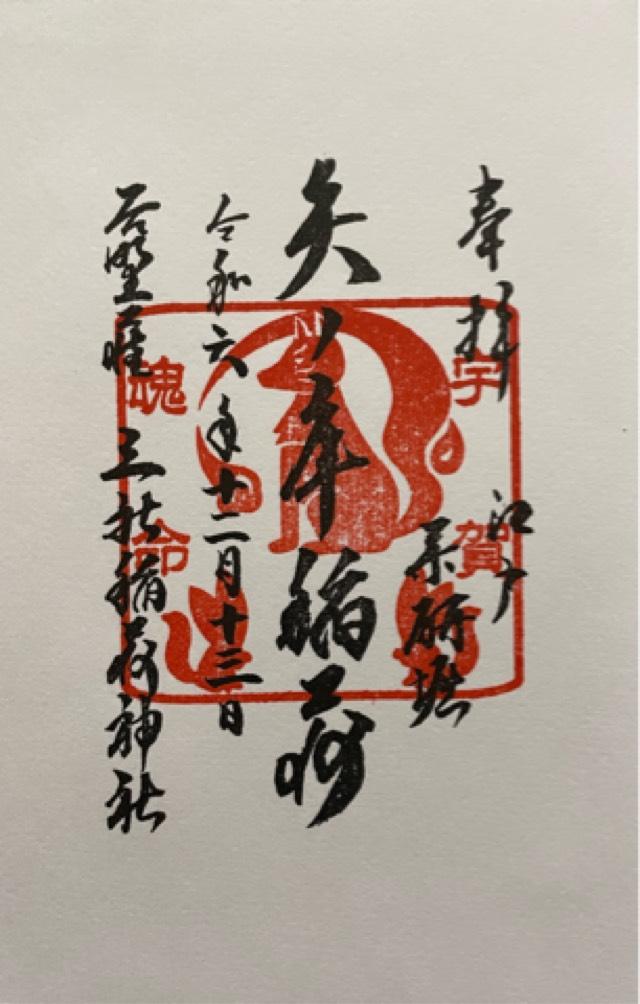 奉拝
江戸
薬研堀
矢ノ庫稲荷
令和六年十二月十三日
三社稲荷神社
宇賀
魂命